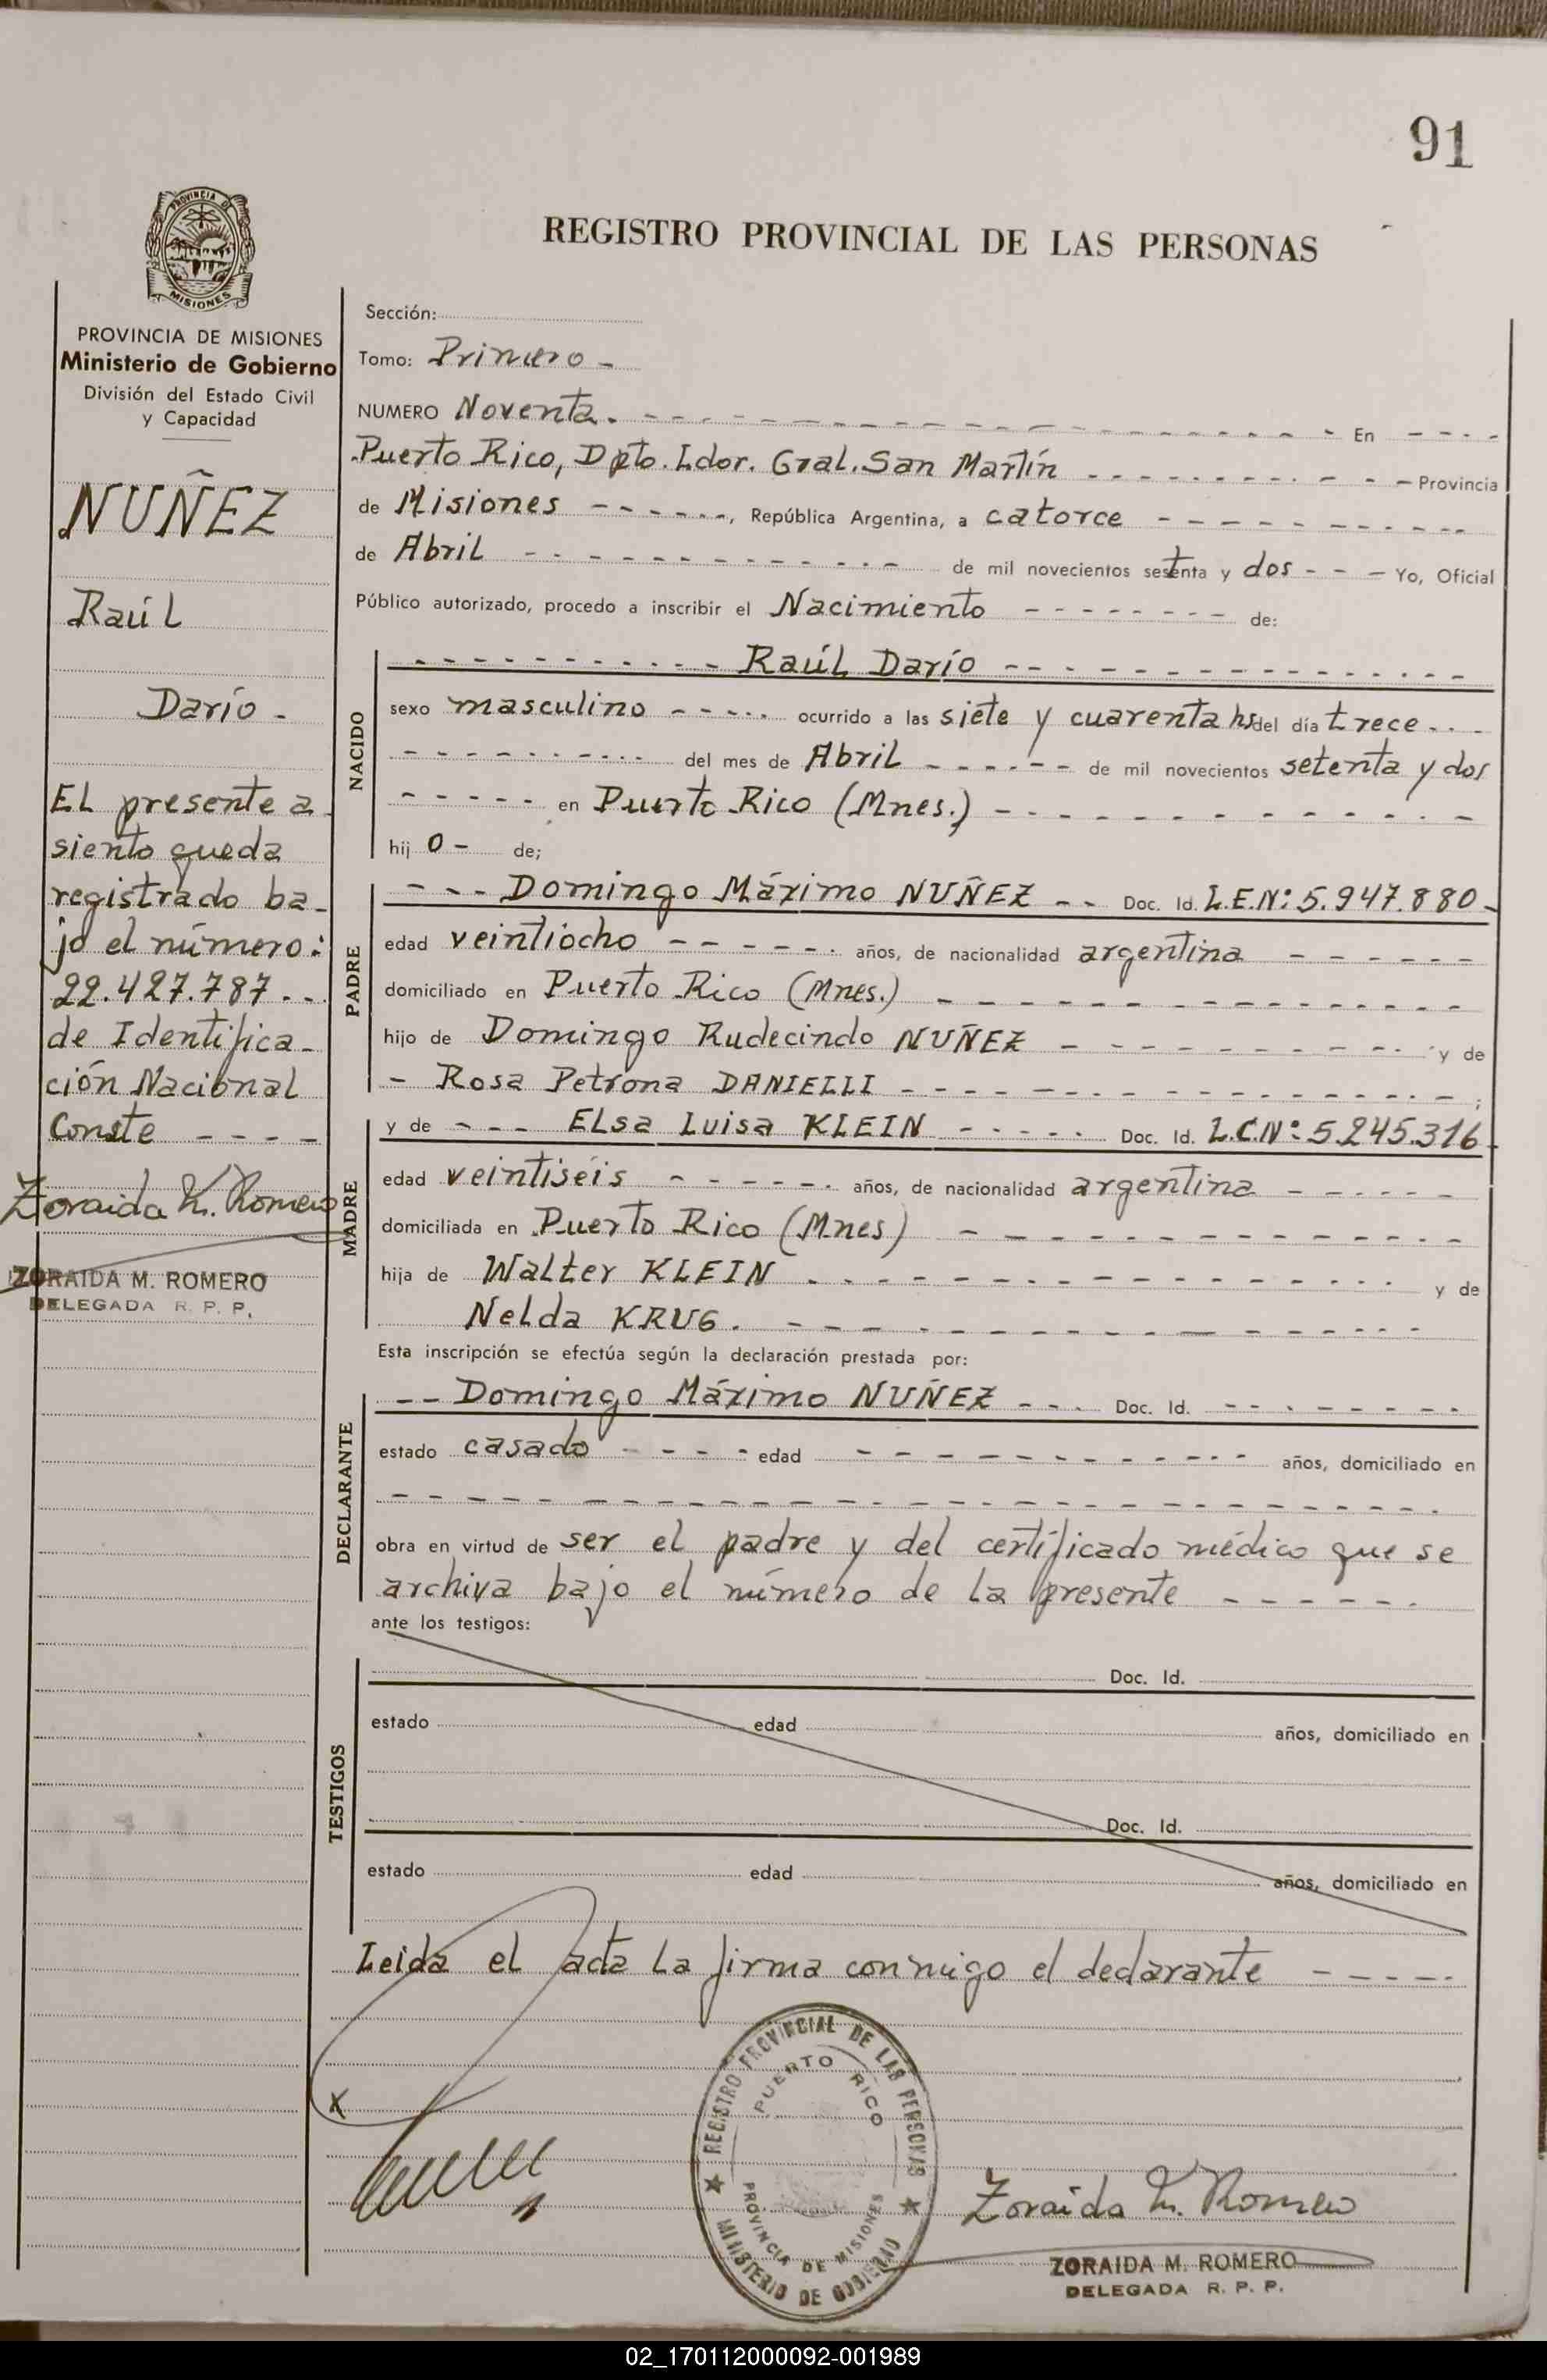 91
PROVINCIA DE
MISIONES
REGISTRO PROVINCIAL DE LAS PERSONAS
PROVINCIA DE MISIONES
Ministerio de Gobierno
División del Estado Civil
y Capacidad
NUÑEZ
Raúl
Darío -
EL presente a
siento queda
registrado ba-
jo el número:
22.427.787 - -
de Identifica-
ción Nacional
Conste - - - -
Zoraida M. Romero
ZORAIDA M. ROMERO
DELEGADA R. P. P.
Sección:
Tomo: Primero -
NUMERO Noventa. - - - - En - - - -
Puerto Rico, Dpto. Ldor. Gral. San Martín - - - - Provincia
de Misiones - - - - - -, República Argentina, a catorce - - - -
de Abril - - - - de mil novecientos setenta y dos - - - Yo, Oficial
Público autorizado, procedo a inscribir el Nacimiento - - - - de:
NACIDO
- - - - Raúl Darío - - - -
sexo masculino - - - - - ocurrido a las siete y cuarenta hs del día trece - - -
- - - - del mes de Abril - - - - - - de mil novecientos setenta y dos
- - - - - en Puerto Rico (Mnes.) - - - -
hij o - de;
PADRE
- - - Domingo Máximo NUÑEZ - - Doc. Id. L.E.Nº: 5.947.880 -
edad veintiocho - - - - - - años, de nacionalidad argentina - - - - - -
domiciliado en Puerto Rico (Mnes.) - - - -
hijo de Domingo Rudecindo NUÑEZ - - - - y de
- Rosa Petrona DANIELLI - - - - ;
MADRE
y de - - - ELsa Luisa KLEIN - - - - - Doc. Id. L.C.Nº: 5.245.316 -
edad veintiséis - - - - - - años, de nacionalidad argentina - - - - - -
domiciliada en Puerto Rico (Mnes) - - - -
hija de Walter KLEIN - - - - y de
Nelda KRUG. - - - -
Esta inscripción se efectúa según la declaración prestada por:
DECLARANTE
- - Domingo Máximo NUÑEZ - - - Doc. Id. - - - -
estado casado - - - - edad - - - - años, domiciliado en
- - - -
obra en virtud de ser el padre y del certificado médico que se
archiva bajo el número de la presente - - - - - -
ante los testigos:
TESTIGOS
Doc. Id.
estado edad años, domiciliado en
Doc. Id.
estado edad años, domiciliado en
Leida el acta la firma conmigo el declarante - - - - -
x
REGISTRO PROVINCIAL DE LAS PERSONAS
PUERTO RICO
PROVINCIA DE MISIONES
MINISTERIO DE GOBIERNO
Zoraida M. Romero
ZORAIDA M. ROMERO
DELEGADA R. P. P.
02_170112000092-001989